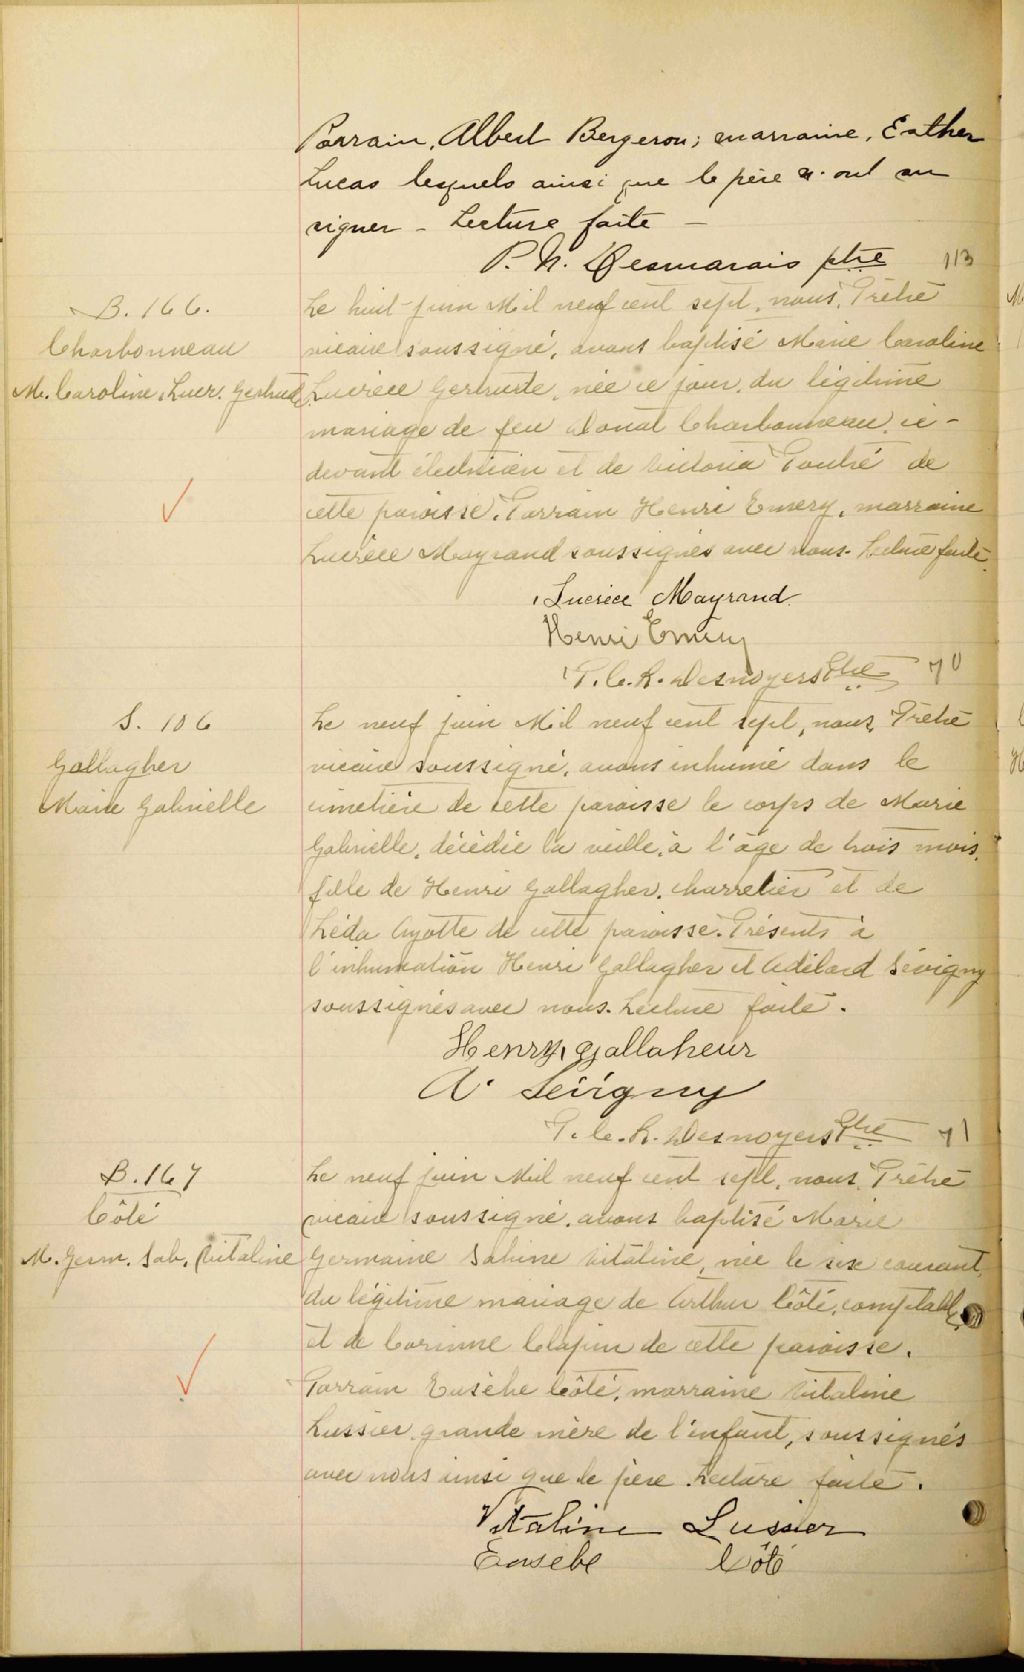 Parrain, Albert Bergeron; marraine, Esther
Lucas lesquels ainsi que le père n'ont su
signer - Lecture faite -
P. N. Desmarais ptre 113
B. 166.
Charbonneau
M. Caroline, Lucr. Gertrude
Le huit juin Mil neuf cent sept, nous, Prêtre
vicaire soussigné, avons baptisé Marie Caroline
Lucrèce Gertrude, née ce jour, du légitime
mariage de feu Donat Charbonneau, ci-
devant électricien et de Victoria Poutré de
cette paroisse. Parrain Henri Emery, marraine
Lucrèce Mayrand soussignés avec nous. Lecture faite.
Lucrèce Mayrand
Henri Emery
P. C. R. Desnoyers Ptre 70
S. 106
Gallagher
Marie Gabrielle
Le neuf juin Mil neuf cent sept, nous, Prêtre
vicaire soussigné, avons inhumé dans le
cimetière de cette paroisse le corps de Marie
Gabrielle, décédée la veille, à l'âge de trois mois,
fille de Henri Gallagher, charretier et de
Léda Ayotte de cette paroisse. Présents à
l'inhumation Henri Gallagher et Adélard Sévigny
soussignés avec nous. Lecture faite.
Henry Gallaheur
A. Sévigny
P. C. R. Desnoyers Ptre 71
B. 167
Côté
M. Germ. Sab. Vitaline
Le neuf juin Mil neuf cent sept, nous, Prêtre
vicaire soussigné, avons baptisé Marie
Germaine Sabine Vitaline, née le six courant,
du légitime mariage de Arthur Côté, comptable,
et de Corinne Clapin de cette paroisse.
Parrain Eusèbe Côté, marraine Vitaline
Lussier, grande mère de l'enfant, soussignés
avec nous ainsi que le père. Lecture faite.
Vitaline Lussier
Eusebe Côté